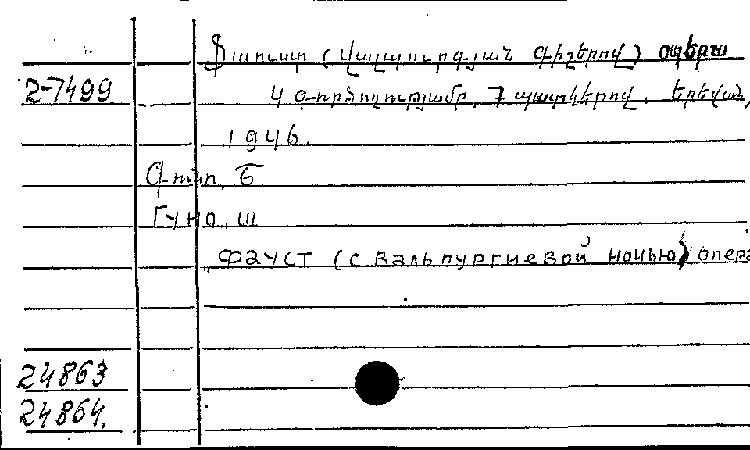 Ֆաուստ (Վալպուրգյան գիշերով) օպերա
2-7499 4 գործողությամբ, 7 պատկերով. Երևան,
1946.
Գունո, Շ
Гуно, Ш
Фауст (с Вальпургиевой ночью) опера
24863
24864.